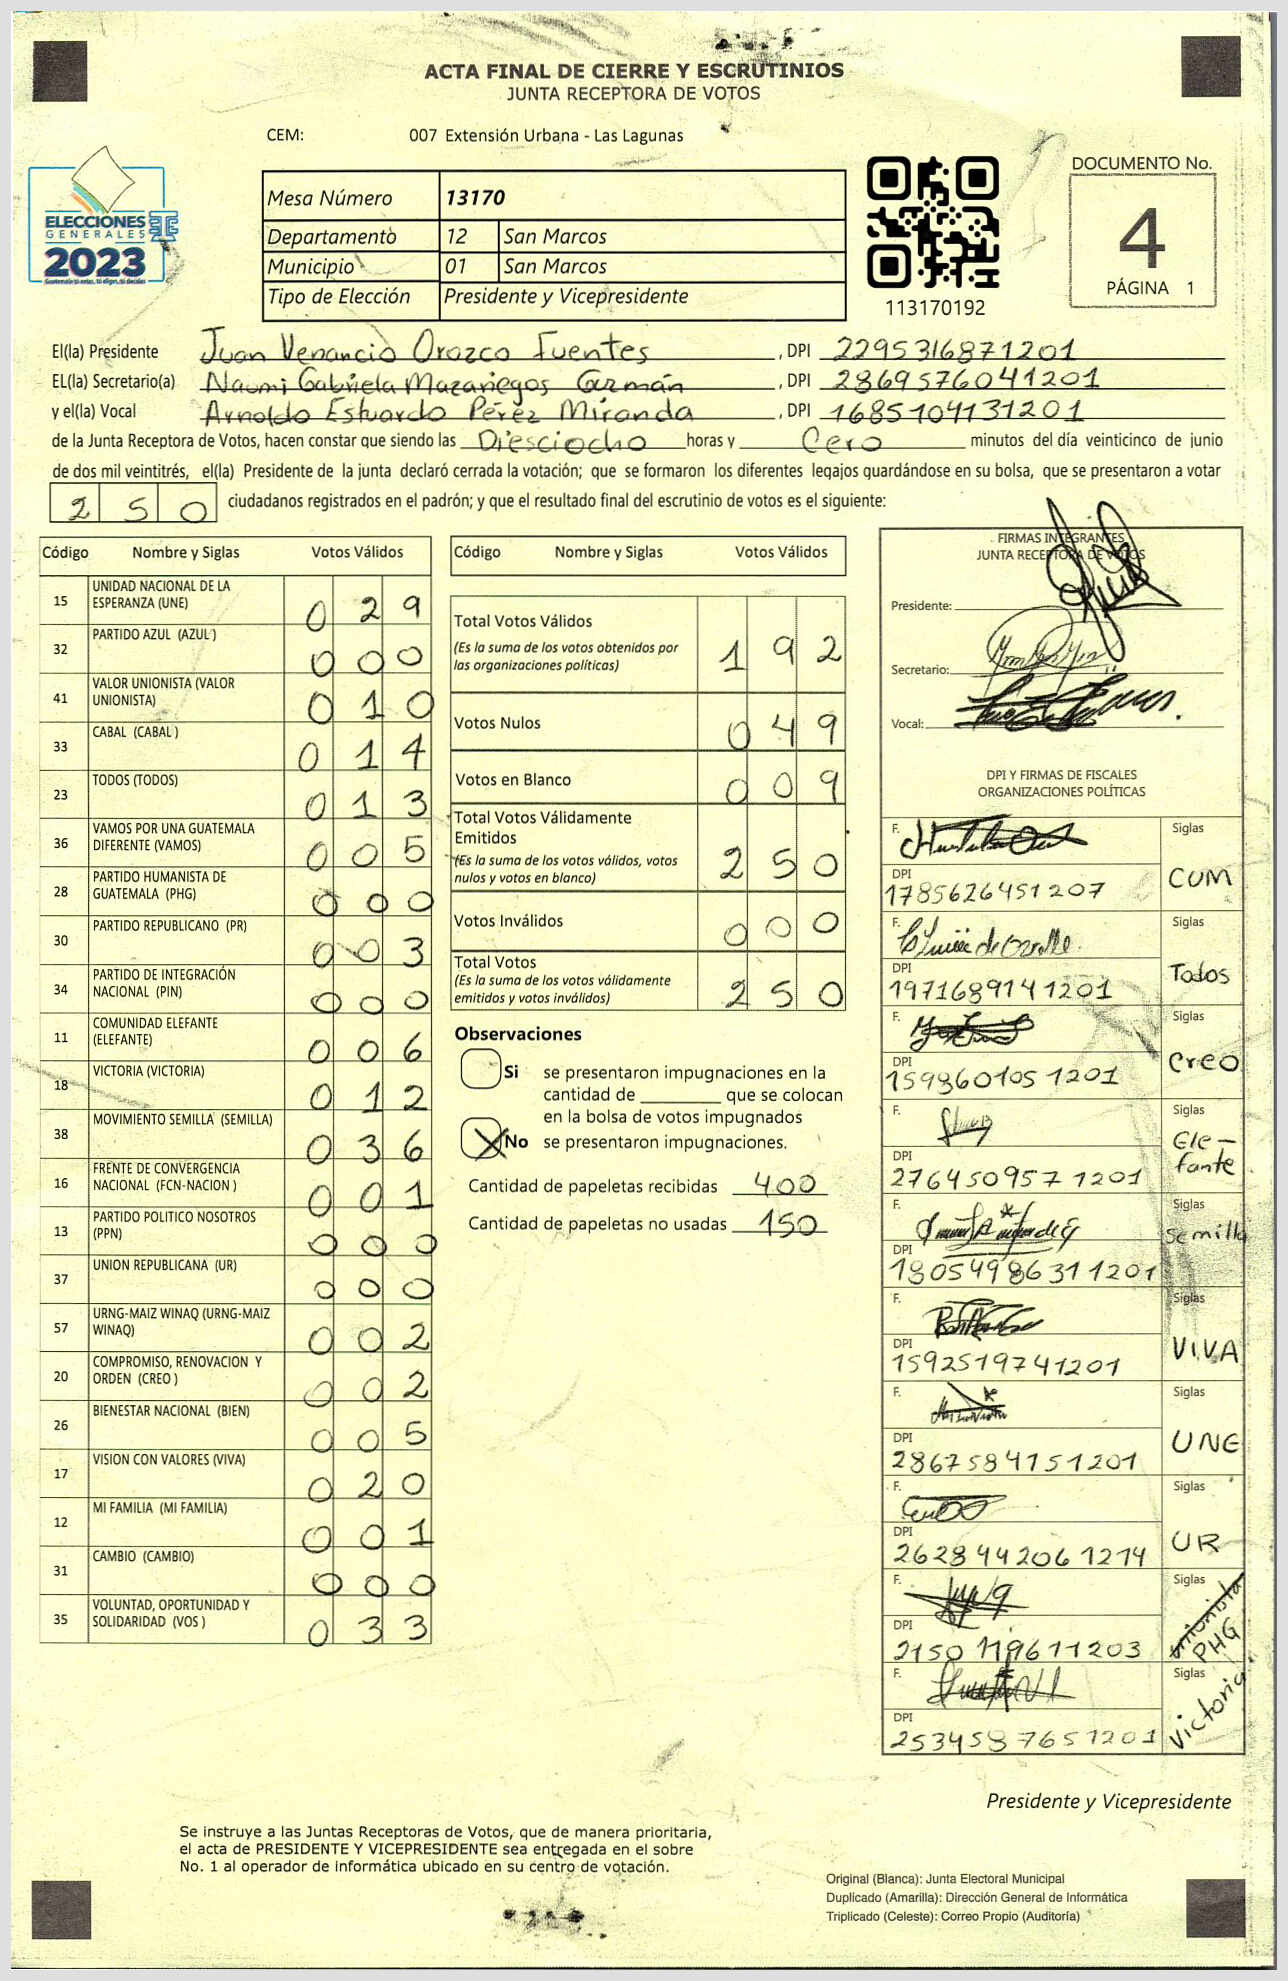 ACTA FINAL DE CIERRE Y ESCRUTINIOS
JUNTA RECEPTORA DE VOTOS
CEM: 007 Extensión Urbana - Las Lagunas
ELECCIONES
GENERALES
2023
Mesa Número 13170
Departamento 12 San Marcos
Municipio 01 San Marcos
Tipo de Elección Presidente y Vicepresidente
113170192
DOCUMENTO No.
4
PÁGINA 1
El(la) Presidente Juan Venancio Orozco Fuentes , DPI 2295316871201
EL(la) Secretario(a) Naomi Gabriela Mazariegos Guzmán , DPI 2869576041201
y el(la) Vocal Arnoldo Estuardo Pérez Miranda , DPI 1685104131201
de la Junta Receptora de Votos, hacen constar que siendo las Diesciocho horas y Cero minutos del día veinticinco de junio
de dos mil veintitrés, el(la) Presidente de la junta declaró cerrada la votación; que se formaron los diferentes legajos guardándose en su bolsa, que se presentaron a votar
250 ciudadanos registrados en el padrón; y que el resultado final del escrutinio de votos es el siguiente:
Código Nombre y Siglas Votos Válidos
15 UNIDAD NACIONAL DE LA ESPERANZA (UNE) 029
32 PARTIDO AZUL (AZUL ) 000
41 VALOR UNIONISTA (VALOR UNIONISTA) 010
33 CABAL (CABAL ) 014
23 TODOS (TODOS) 013
36 VAMOS POR UNA GUATEMALA DIFERENTE (VAMOS) 005
28 PARTIDO HUMANISTA DE GUATEMALA (PHG) 000
30 PARTIDO REPUBLICANO (PR) 003
34 PARTIDO DE INTEGRACIÓN NACIONAL (PIN) 000
11 COMUNIDAD ELEFANTE (ELEFANTE) 006
18 VICTORIA (VICTORIA) 012
38 MOVIMIENTO SEMILLA (SEMILLA) 036
16 FRENTE DE CONVERGENCIA NACIONAL (FCN-NACION ) 001
13 PARTIDO POLITICO NOSOTROS (PPN) 000
37 UNION REPUBLICANA (UR) 000
57 URNG-MAIZ WINAQ (URNG-MAIZ WINAQ) 002
20 COMPROMISO, RENOVACION Y ORDEN (CREO ) 002
26 BIENESTAR NACIONAL (BIEN) 005
17 VISION CON VALORES (VIVA) 020
12 MI FAMILIA (MI FAMILIA) 001
31 CAMBIO (CAMBIO) 000
35 VOLUNTAD, OPORTUNIDAD Y SOLIDARIDAD (VOS ) 033
Código Nombre y Siglas Votos Válidos
Total Votos Válidos 192
(Es la suma de los votos obtenidos por
las organizaciones políticas)
Votos Nulos 049
Votos en Blanco 009
Total Votos Válidamente
Emitidos 250
(Es la suma de los votos válidos, votos
nulos y votos en blanco)
Votos Inválidos 000
Total Votos 250
(Es la suma de los votos válidamente
emitidos y votos inválidos)
Observaciones
Si se presentaron impugnaciones en la
cantidad de ________ que se colocan
en la bolsa de votos impugnados
X No se presentaron impugnaciones.
Cantidad de papeletas recibidas 400
Cantidad de papeletas no usadas 150
FIRMAS INTEGRANTES
JUNTA RECEPTORA DE VOTOS
Presidente:
Secretario:
Vocal:
DPI Y FIRMAS DE FISCALES
ORGANIZACIONES POLÍTICAS
F. Siglas
DPI
1785626451207 CUM
F. Siglas
DPI
1971689141201 Todos
F. Siglas
DPI
1593601051201 Creo
F. Siglas
DPI
2764509571201 Ele-
fante
F. Siglas
DPI
18054986311201 Semilla
F. Siglas
DPI
1592519741201 VIVA
F. Siglas
DPI
2867584151201 UNE
F. Siglas
DPI
2628442061214 UR
F. Siglas
DPI
2150119611203 unionista
PHG
F. Siglas
DPI
2534587651201 Victoria
Presidente y Vicepresidente
Se instruye a las Juntas Receptoras de Votos, que de manera prioritaria,
el acta de PRESIDENTE Y VICEPRESIDENTE sea entregada en el sobre
No. 1 al operador de informática ubicado en su centro de votación.
Original (Blanca): Junta Electoral Municipal
Duplicado (Amarilla): Dirección General de Informática
Triplicado (Celeste): Correo Propio (Auditoría)